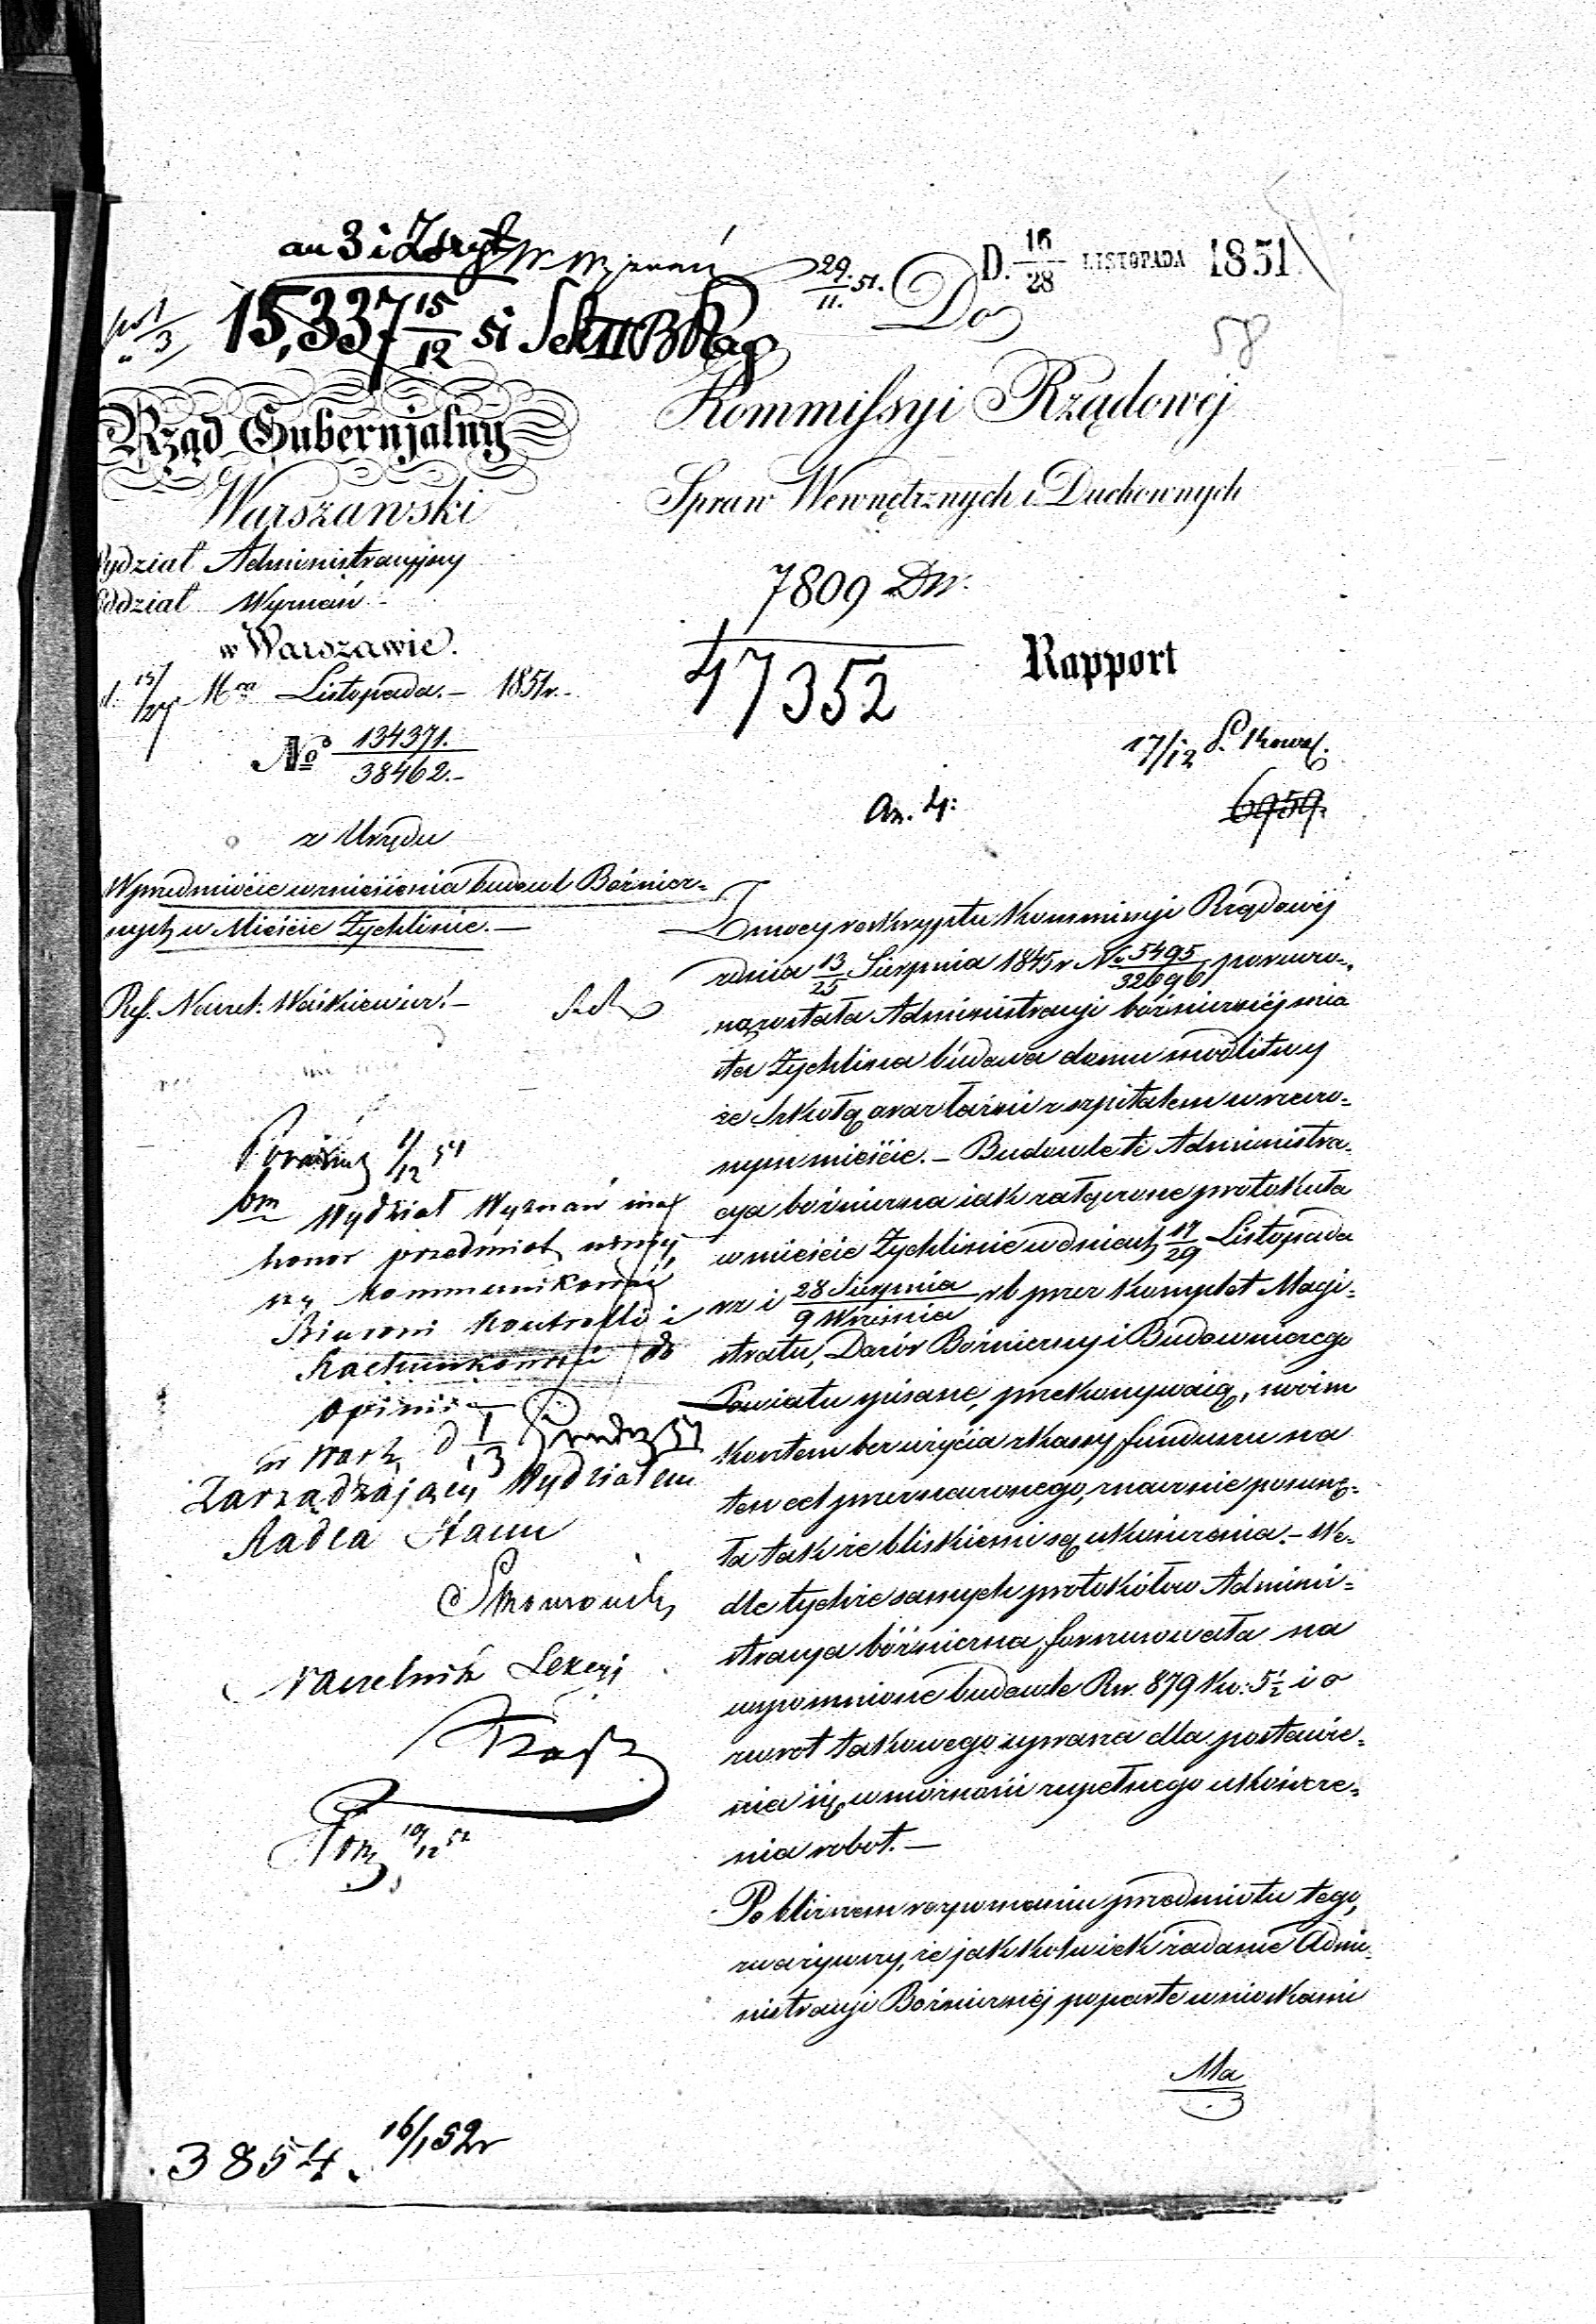 an 3 i Zszyt W. Wyznań
29/11. 51.
D. 16/28 LISTOPADA 1851
58
15,337 15/12 51 Sek II B
Do
Rząd Gubernjalny
Kommissyi Rządowej
Warszawski
Spraw Wewnętrznych i Duchownych
Wydział Administracyjny
Oddział Wyznań
w Warszawie.
d. 15/27 Mca Listopada. – 1851 r. –
No 134371. / 38462. –
7809 Dn:
47352
Rapport
17/12
an. 4:
6959.
z Urzędu
W przedmiocie wzniesienia budowl Bożnicz-
nych w Mieście Żychlinie. –
Ref. Naczel: Waśkiewicz. –
Z mocy reskryptu Kommissyi Rządowej
z dnia 13/25 Sierpnia 1845 r No 5495/32696 poruczo-
ną została Administracyi bóżniczniej mia
sta Żychlina budowa domu modlitwy
ze Szkołą oraz łaźni z szpitalem w rzeczo-
nym mieście. – Budowle te Administra-
cya bożniczna iak załączone protokuła
w mieście Żychlinie w dniach 17/29 Listopada
rz i 28 Sierpnia / 9 Września r b przez Komplet Magi-
stratu, Dozór Bożniczny i Budowniczego
Powiatu spisane, przekonywaią, swoim
kosztem bez użycia z kassy funduszu na
ten cel przeznaczonego, znacznie posunę-
ła tak że bliskiemi są ukończenia. – We-
dle tychże samych protokółów Admini-
stracya bóżniczna, forszusowała na
wspomnione budowle Rsr. 879 Ko: 5½ i o
zwrot takowego wzywana dla postawie-
nia się w możności zupełnego ukończe-
nia robot. –
Po bliższem rozpoznaniu przedmiotu tego,
zważywszy, że jakkolwiek żadanie Admi-
nistracyi Bożniczniej poparte wnioskami
Ma
1/12 51
bm Wydział Wyznań ma
honor przedmiot niniej-
szy kommunikować
Biuroni Kontrolli i
Rachunkowości do
opinii
w Warsz. d 1/13 Grudz 51
Zarządzający Wydziałem
Radca Stanu
Naczelnik Sekcyi
10/12 51
3854. 16/1 52 r